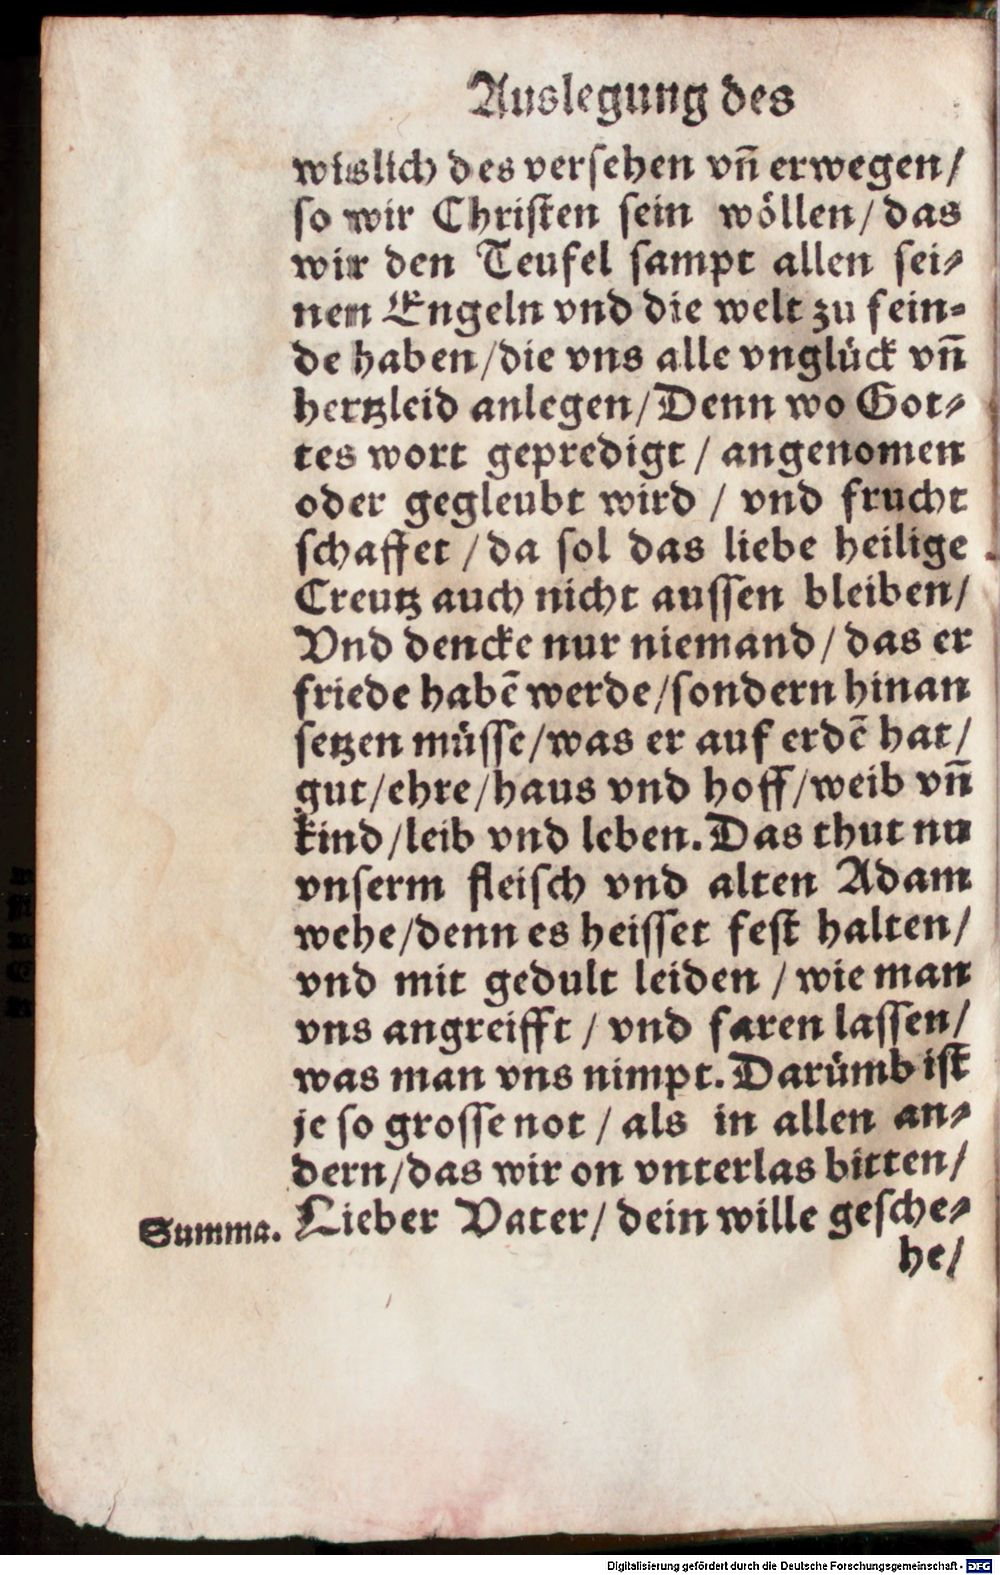 Auslegung des
wislich des versehen vn̄ erwegen/
so wir Christen sein wöllen/ das
wir den Teufel sampt allen sei-
nen Engeln vnd die welt zu fein-
de haben/die vns alle vnglück vn̄
hertzleid anlegen/Denn wo Got-
tes wort gepredigt / angenomen
oder gegleubt wird / vnd frucht
schaffet / da sol das liebe heilige
Creutz auch nicht aussen bleiben/
Vnd dencke nur niemand/ das er
friede habē werde/sondern hinan
setzen müsse/was er auf erdē hat/
gut/ehre/haus vnd hoff/weib vn̄
kind/leib vnd leben. Das thut nu
vnserm fleisch vnd alten Adam
wehe/denn es heisset fest halten/
vnd mit gedult leiden / wie man
vns angreifft / vnd faren lassen/
was man vns nimpt. Darümb ist
je so grosse not / als in allen an-
dern/das wir on vnterlas bitten/
Summa. Lieber Vater/ dein wille gesche-
he/
Digitalisierung gefördert durch die Deutsche Forschungsgemeinschaft - DFG